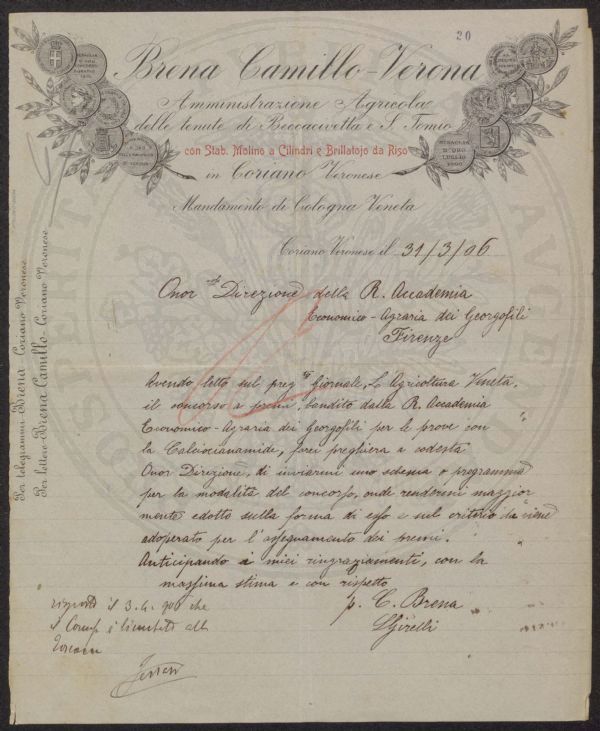 20
Brena Camillo-Verona
Amministrazione Agricola
delle tenute di Beccacivetta e S. Tomio
con Stab. Molino a Cilindri e Brillatojo da Riso
in Coriano Veronese
Mandamento di Cologna Veneta
Coriano Veronese il 31/3/06
Onor. Direzione della R. Accademia
Economico-Agraria dei Georgofili
Firenze
Avendo letto sul preg. Giornale, L'Agricoltura Veneta,
il concorso a premi, bandito dalla R. Accademia
Economico-Agraria dei Georgofili per le prove con
la Calciocianamide, farei preghiera a codesta
Onor Direzione, di inviarmi uno schema o programma
per la modalità del concorso, onde rendermi maggior
mente edotto sulla forma di esso e sul criterio che viene
adoperato per l'assegnamento dei premi.
Anticipando i miei ringraziamenti, con la
massima stima e con rispetto
p. C. Brena
LGirelli
il 3.4.906 che
Per telegrammi-Brena-Coriano Veronese
Per lettere-Brena Camillo-Coriano Veronese
MEDAGLIA
D'ORO
LUGLIO
1900